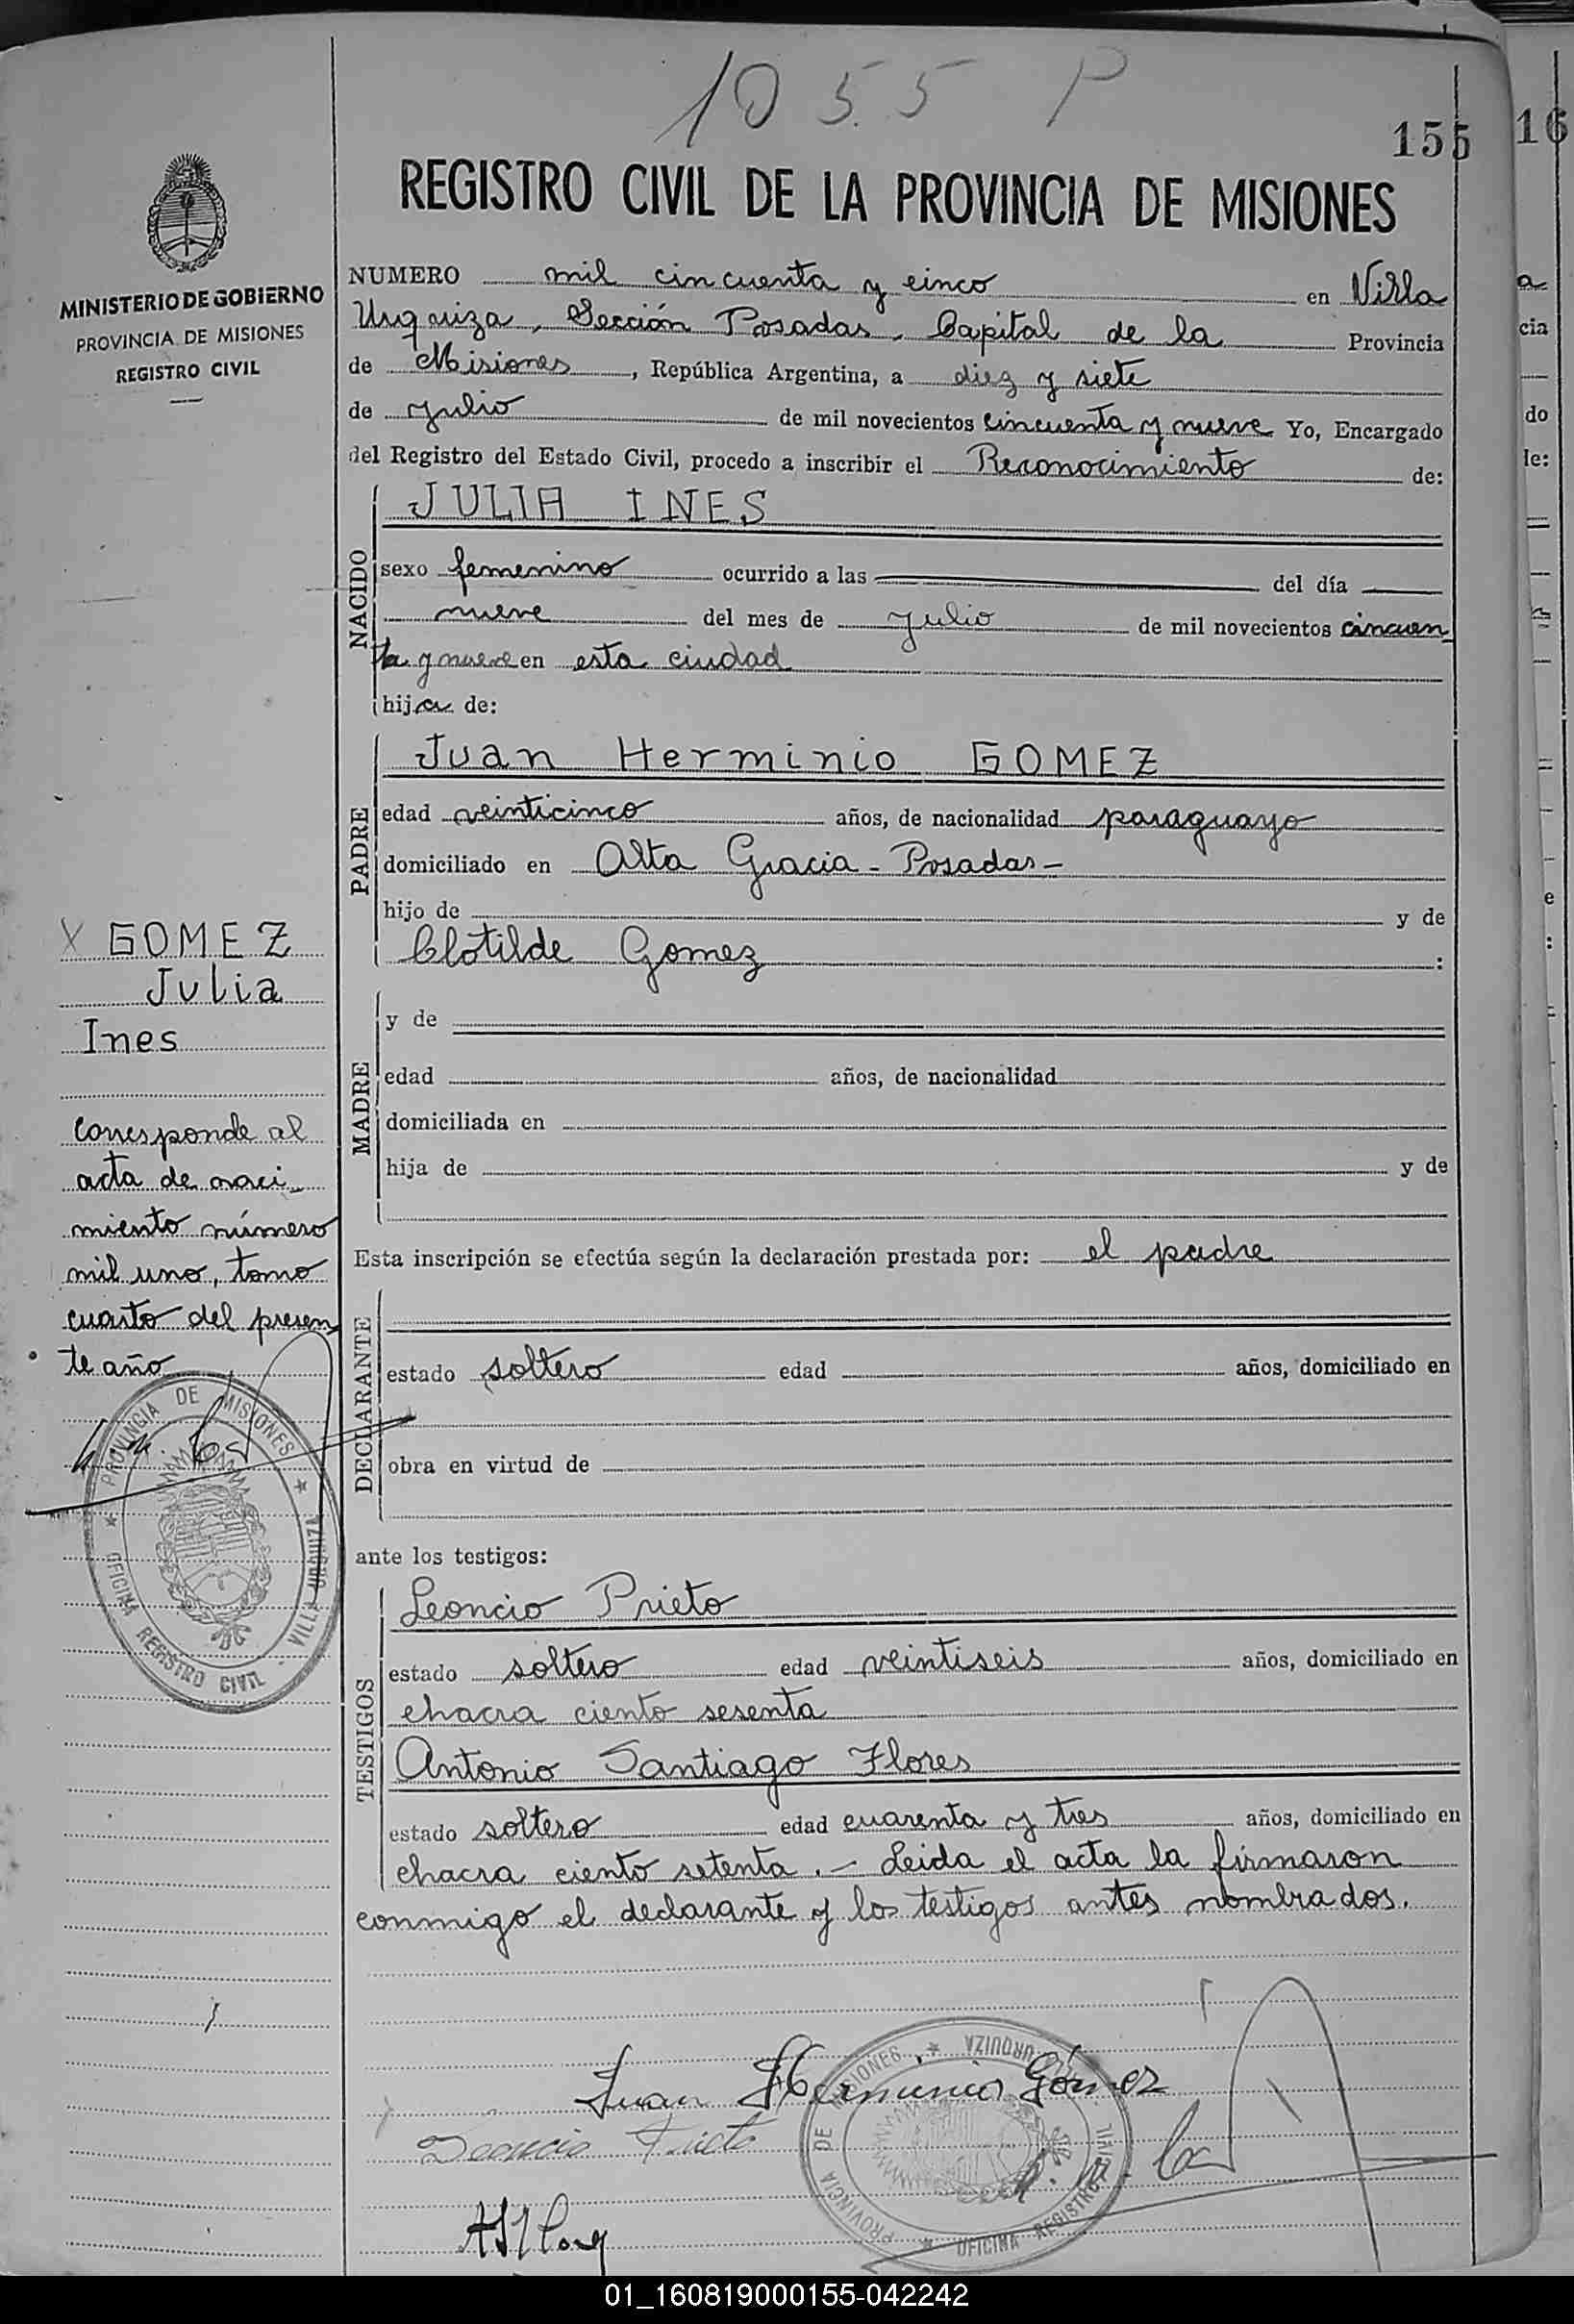 1055 P
155
REGISTRO CIVIL DE LA PROVINCIA DE MISIONES
MINISTERIO DE GOBIERNO
PROVINCIA DE MISIONES
REGISTRO CIVIL
NUMERO mil cincuenta y cinco en Villa
Urquiza, Sección Posadas, Capital de la Provincia
de Misiones, República Argentina, a diez y siete
de julio de mil novecientos cincuenta y nueve Yo, Encargado
del Registro del Estado Civil, procedo a inscribir el Reconocimiento de:
NACIDO
JULIA INES
sexo femenino ocurrido a las del día
nueve del mes de julio de mil novecientos cincuen
ta y nueve en esta ciudad
hija de:
PADRE
Juan Herminio GOMEZ
edad veinticinco años, de nacionalidad paraguayo
domiciliado en Alta Gracia - Posadas -
hijo de y de
Clotilde Gomez :
MADRE
y de
edad años, de nacionalidad
domiciliada en
hija de y de
Esta inscripción se efectúa según la declaración prestada por: el padre
DECLARANTE
estado soltero edad años, domiciliado en
obra en virtud de
ante los testigos:
TESTIGOS
Leoncio Prieto
estado soltero edad veintiseis años, domiciliado en
chacra ciento sesenta
Antonio Santiago Flores
estado soltero edad cuarenta y tres años, domiciliado en
chacra ciento setenta .- Leida el acta la firmaron
conmigo el declarante y los testigos antes nombrados.
X GOMEZ
Julia
Ines
Corresponde al
acta de naci_
miento número
mil uno, tomo
cuarto del presen
te año
PROVINCIA DE MISIONES
OFICINA REGISTRO CIVIL - VILLA URQUIZA
Juan Herminio Gómez
Leoncio Prieto
PROVINCIA DE MISIONES
URQUIZA
OFICINA REGISTRO CIVIL
16
a
cia
do
le:
e
:
01_160819000155-042242